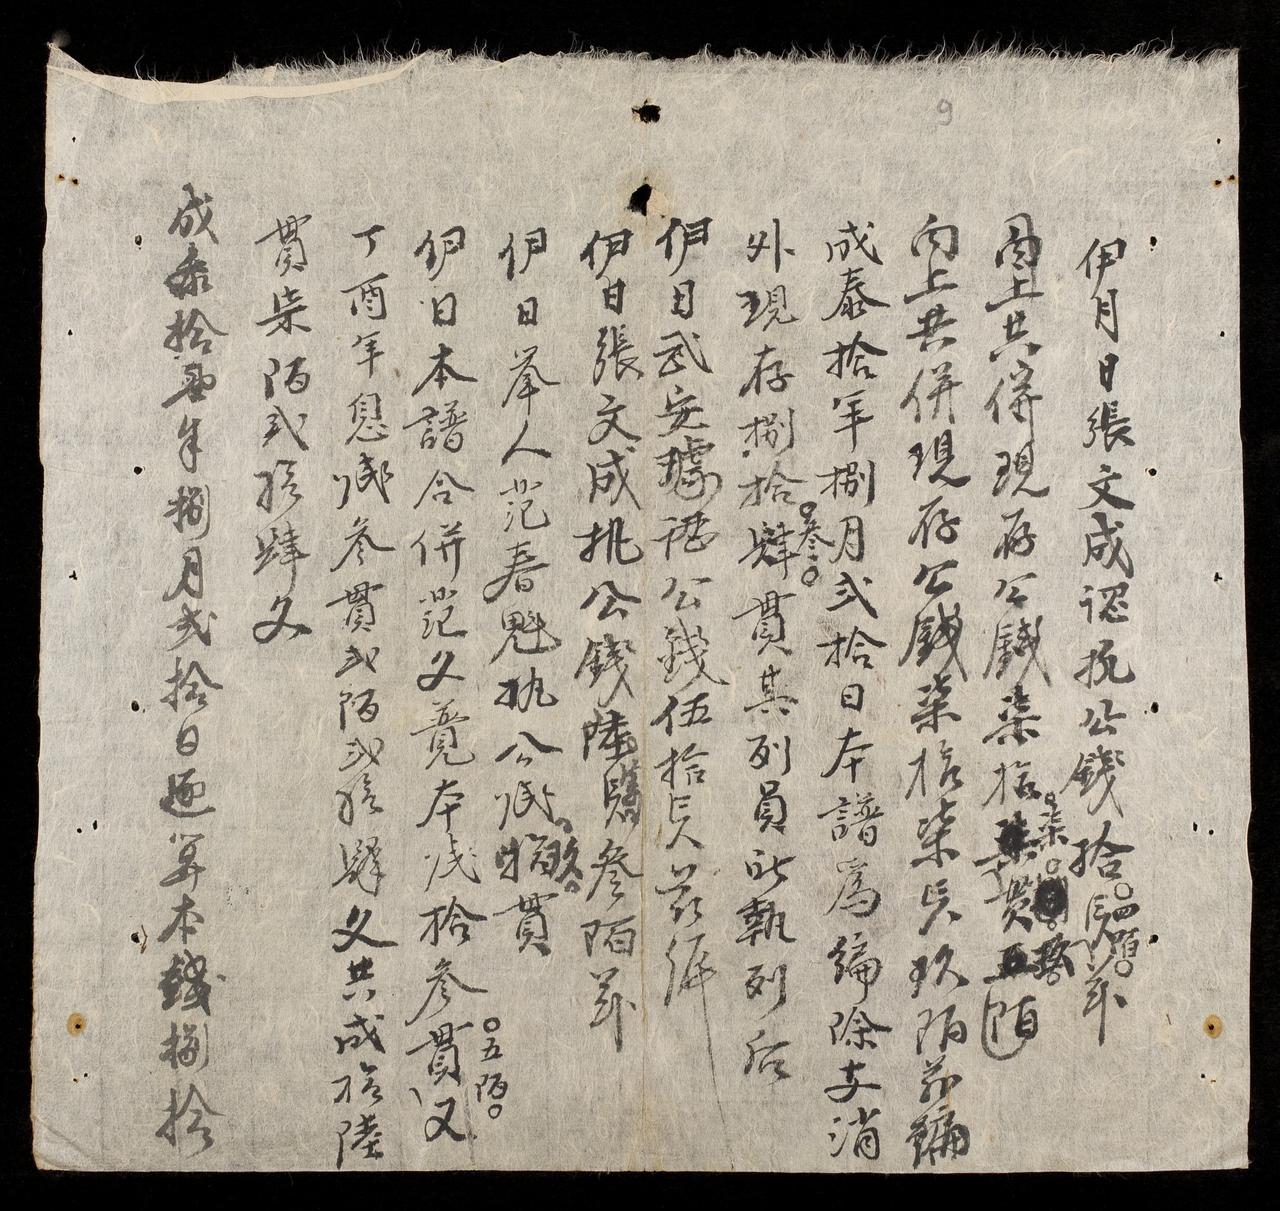 伊月日張文成認執公錢拾貫四陌茲
向上共併現存公錢柒拾柒貫五陌
向上共併現存公錢柒拾柒貫玖陌茲編
成泰拾年捌月弍拾日本譜爲編除支消
外現存捌拾肆貫叁其列員所執列后
伊日武安據認公錢伍拾貫茲编
伊日張文成执公錢陸貫叁陌茲
伊日举人范春魁执公錢拾玖貫
伊日本譜合併范文竟本錢拾叁貫五陌又
丁酉年息錢叁貫弍陌弍拾肆文共成拾陸
貫柒陌弍拾肆文
成泰拾年捌月弍拾日逓算本錢捌拾
9